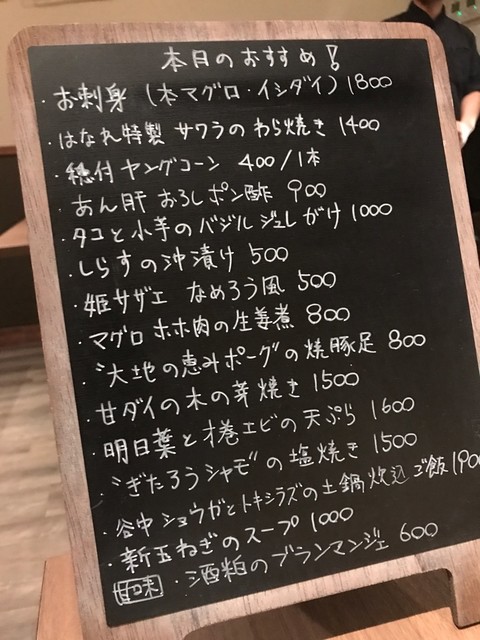 本日のおすすめ！
・お刺身（本マグロ・イシダイ）1800
・はなれ特製 サワラのわら焼き 1400
・穂付ヤングコーン 400/1本
・あん肝 おろしポン酢 900
・タコと小芋のバジルジュレがけ 1000
・しらすの沖漬け 500
・姫サザエ なめろう風 500
・マグロ ホホ肉の生姜煮 800
・"大地の恵みポーグの焼豚足 800
・甘ダイの木の芽焼き 1500
・明日葉と才巻エビの天ぷら 1600
・"ぎたろうシャモ"の塩焼き 1500
・谷中ショウガとトキシラズの土鍋炊込ご飯 1900
・新玉ねぎのスープ 1000
甘味 ・酒粕のブランマンジェ 600